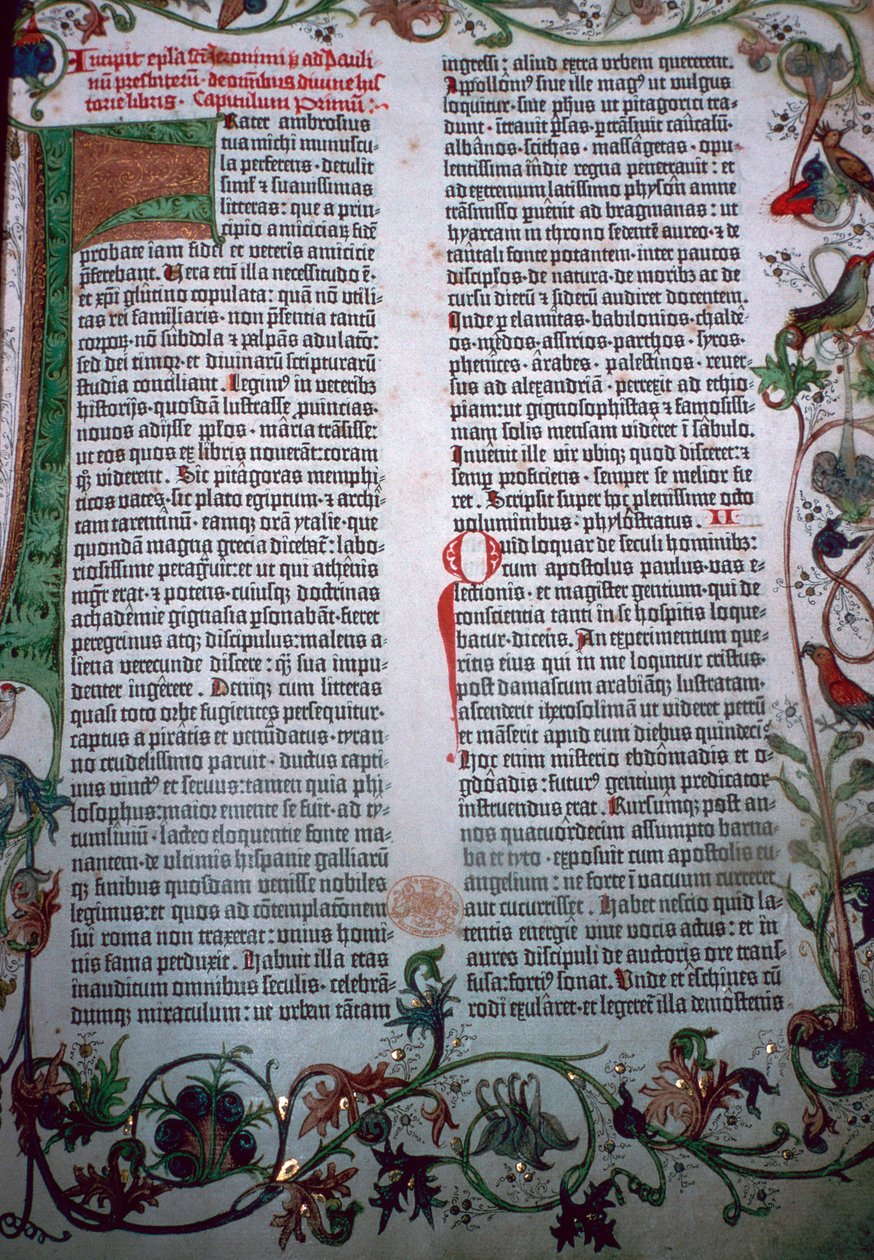 Incipit epl̄a sc̄ti Ieronimi p̄bri ad Pauli-
nū presbiterū · de om̄ibus diuine his-
torie libris · Capitulum Primū :
Frater ambrosius
tua michi munuscu-
la perferens · detulit
simł ꝛ suauissimas
litteras : que a prin-
cipio amiciciaꝝ fidē
probate iam fidei et veteris amicicie
p̄ferebant. Vera enī illa necessitudo ē·
et xp̄i glutino copulata : quā nō vtili-
tas rei familiaris · non p̄sentia tantū
corpoꝝ · nō subdola ⁊ palpās adulatō:
sed dei timor et diuinarū scripturarū
studia conciliant. Legimꝰ in veteribꝫ
historijs · quosdā lustrasse ꝓuincias·
nouos adijsse ppl̄os · maria trāsisse:
ut eos quos ex libris nouerāt : coram
qꝫ viderent. Sic pitagoras memphi-
ticos vates · sic plato egiptum · ⁊ archi-
tam tarentinū · eamqꝫ orā ytalie · que
quondā magna grecia dicebat᷑ : labo-
riosissime peragrauit : et ut qui athenis
mgr̄ erat · ⁊ potens · cuiusqꝫ doctrinas
achademie gignasia ꝑsonabāt · fieret
peregrinus atqꝫ discipulus : malens a-
liena verecunde discere : qꝫ sua impu-
denter ingerere. Deniqꝫ cum litteras
quasi toto orbe fugientes persequitur·
captus a piratis et venūdatus · tyran-
no crudelissimo paruit · ductus capti-
uus vinctꝰ et seruus : tamen quia phi-
losophus : maior emente se fuit · ad ty-
tumliuiū · lacteo eloquentie fonte ma-
nantem · de ultimis hispanie galliarū
qꝫ finibus quosdam venisse nobiles
legimus : et quos ad cōtemplatōnem
sui roma non traxerat : vnius homi-
nis fama perduxit. Habuit illa etas
inauditum omnibus seculis · celebrā-
dumqꝫ miraculum : ut vrbem tātam
ingressi : aliud extra vrbem quererent.
Apollonꝰ siue ille magꝰ ut vulgus
loquitur · siue ph̄us ut pitagorici tra-
dunt · ītrauit ꝑsas · ꝑtrāsiuit caucasū·
albanos · scithas · massagetas · opu-
lentissima īdie regna penetrauit : et
ad extremum latissimo physon amne
trāsmisso ꝑuenit ad bragmanas : ut
hyarcam in throno sedentē aureo · ⁊ de
tantali fonte potantem · inter paucos
discipl̄os · de natura · de moribꝫ ac de
cursu dierū ⁊ siderū audiret docentem.
Inde ꝑ elamitas · babilonios · chalde-
os · medos · assirios · parthos · syros·
phenices · arabes · palestinos · reuer-
sus ad alexandriā · perrexit ad ethio-
piam : ut gignosophistas ⁊ famosissi-
mam solis mensam videret ī sabulo.
Inuenit ille vir vbiqꝫ quod disceret : ⁊
semꝑ proficiens · semper se melior fie-
ret. Scripsit super hoc plenissime octo
voluminibus · phylostratus. II
Quid loquar de seculi hominibꝫ:
cum apostolus paulus · vas e-
lectionis · et magister gentium · qui de
conscientia tanti in se hospitis loque-
batur · dicens. An experimentum que-
ritis eius qui in me loquitur cristus·
post damascum arabiāqꝫ lustratam·
ascenderit iherosolimā ut videret petrū
et māserit apud eum diebus quindeci·
Hoc enim misterio ebdomadis et o-
gdoadis : futurꝰ gentium predicator
instruendus erat. Rursumqꝫ post an-
nos quatuordecim assumpto barna-
ba et tyto · exposuit cum apostolis eu-
angelium : ne forte ī vacuum curreret
aut cucurrisset. Habet nescio quid la-
tentis energie viue vocis actus : et in
aures discipuli de auctoris ore trans-
fusa : fortiꝰ sonat. Unde et eschines cū
rodi exularet · et legeret᷑ illa demostenis